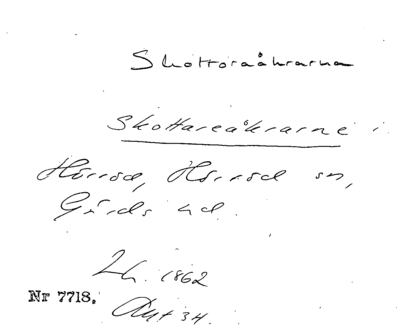 Skottoraåkrarna
Skottareåkrarne i
Hörröd, Hörröd sn,
Gärds hd.
Lh. 1862
Nr 7718. Akt 34.